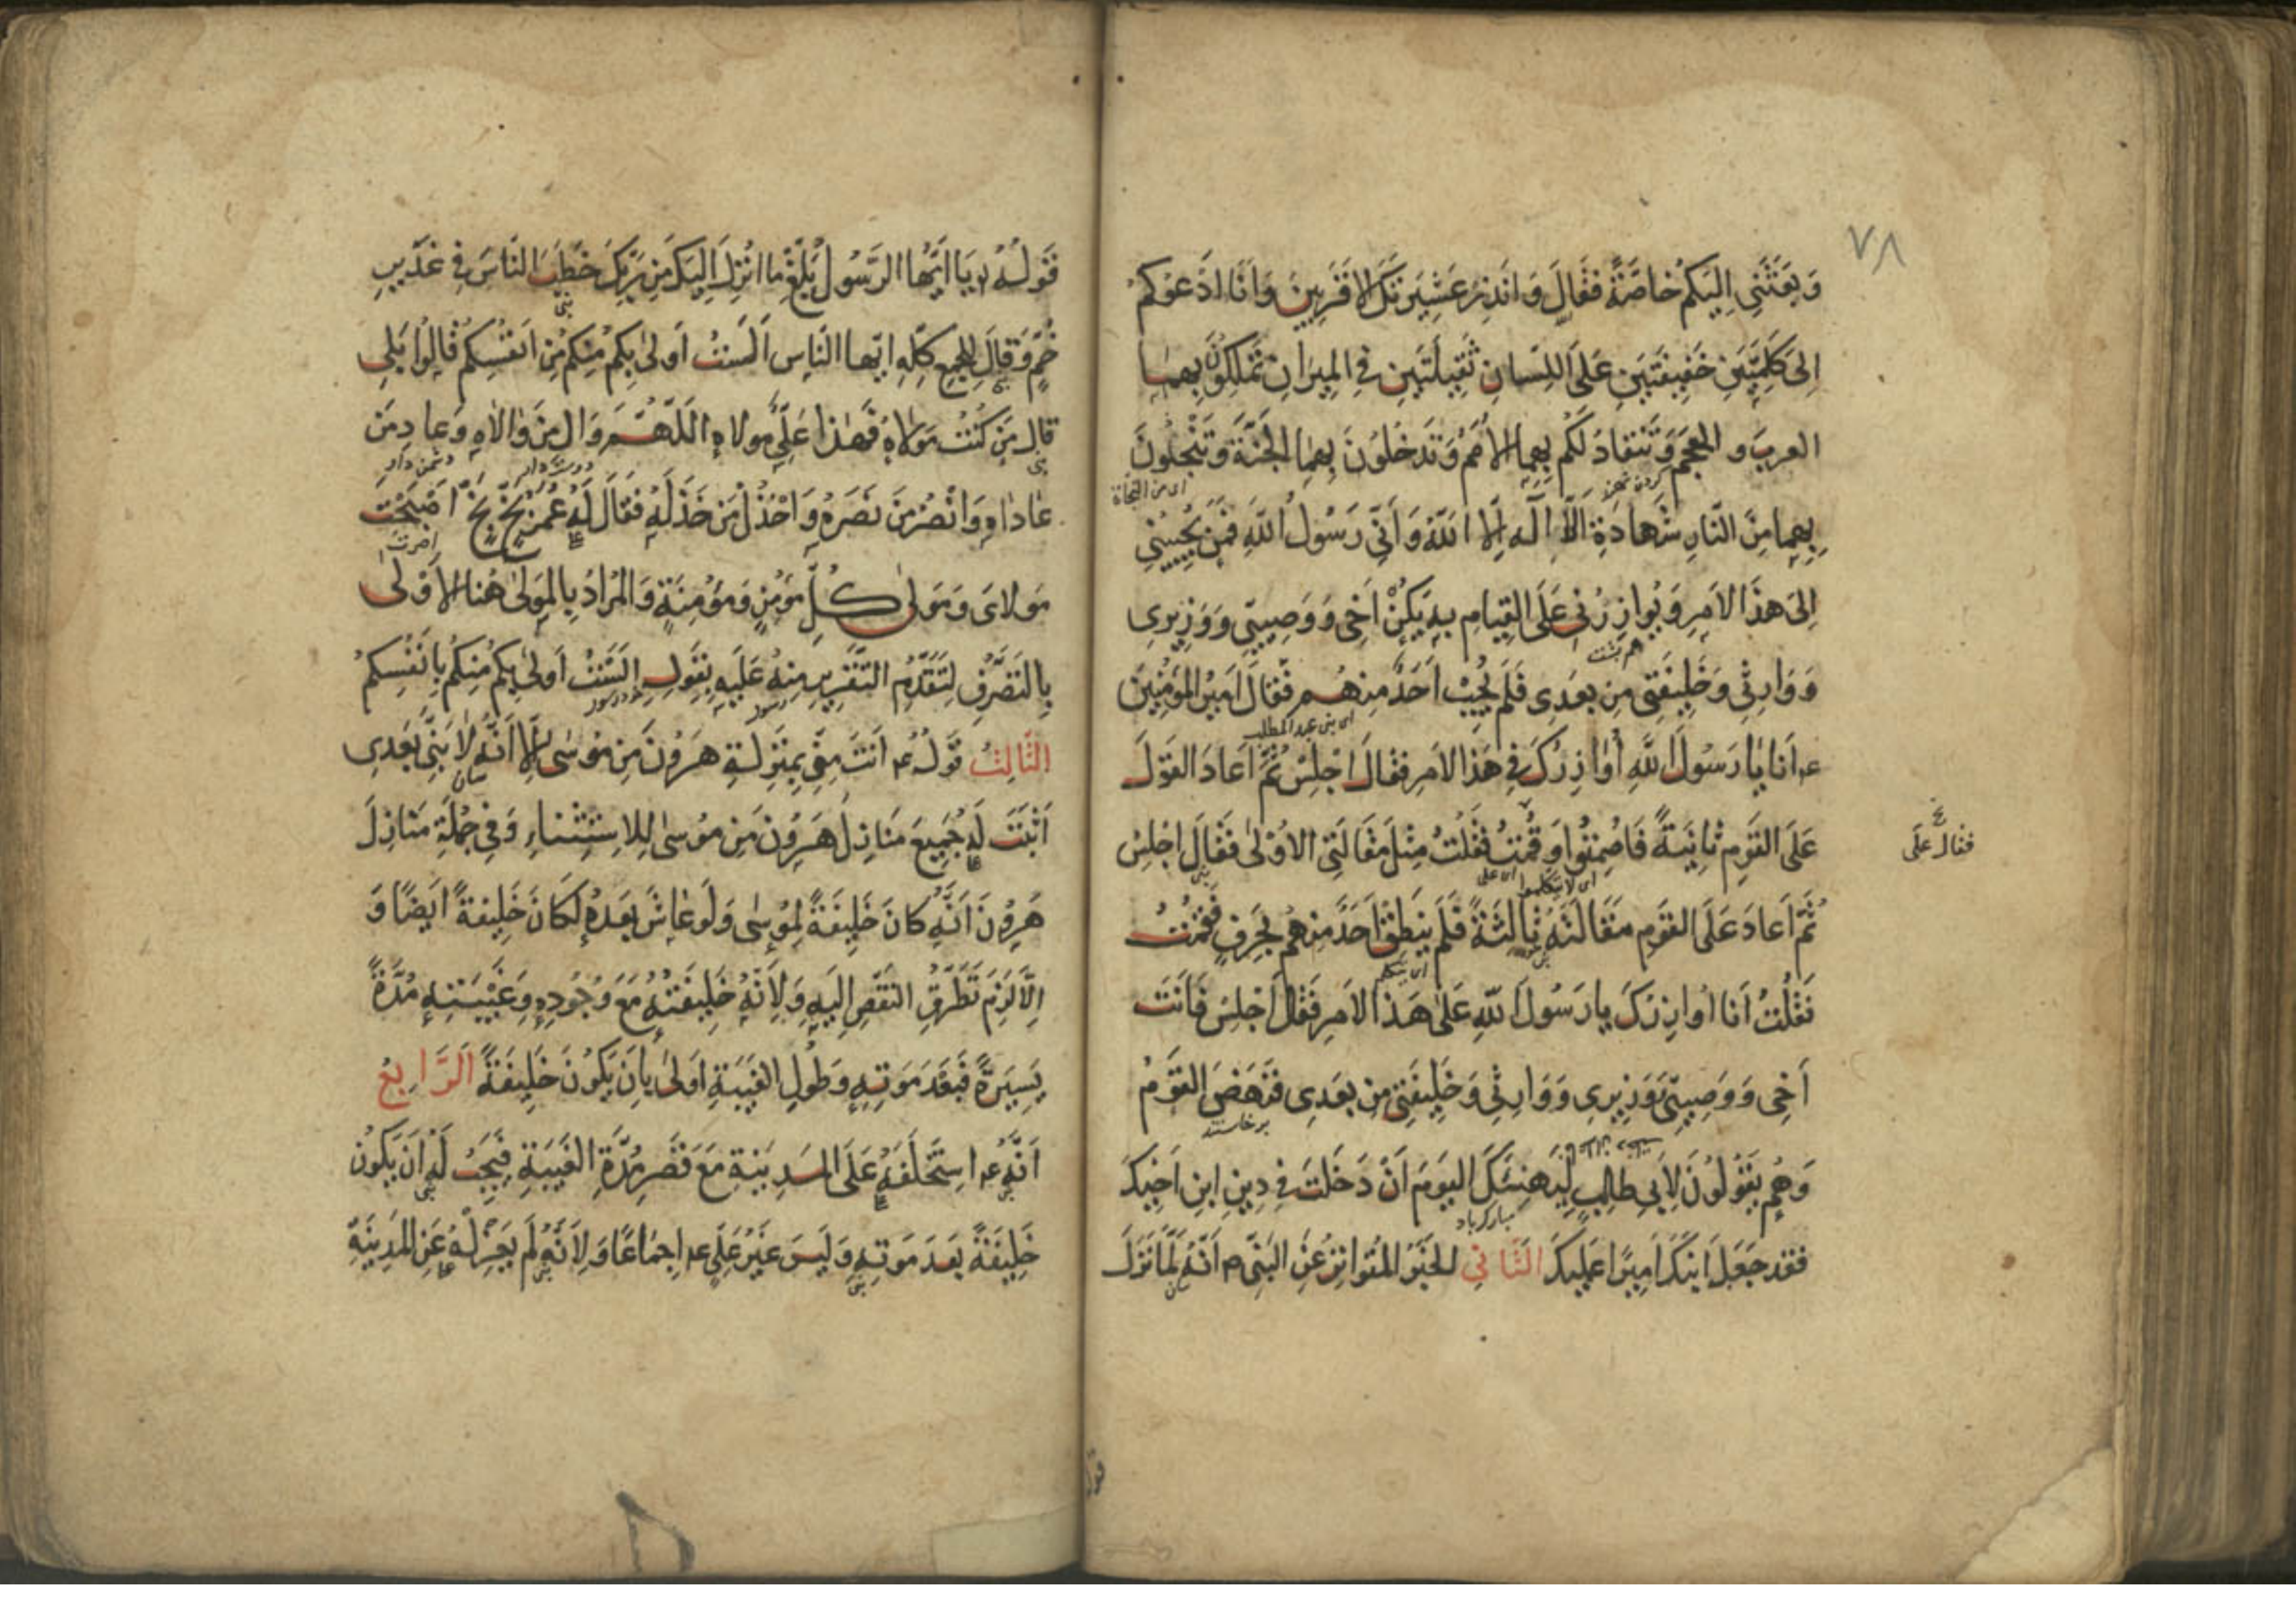 ٧٨
وَبَعَثَنِي اِلَيْكُمْ خَاصَّةً فَقَالَ وَاَنْذِرْ عَشِيرَتَكَ الاَقْرَبِينَ وَاَنَا اَدْعُوكُمْ
اِلَى كَلِمَتَيْنِ خَفِيفَتَيْنِ عَلَى اللِّسَانِ ثَقِيلَتَيْنِ فِي الْمِيزَانِ تَمْلِكُونَ بِهِمَا
العربَ و العجمَ وَتَنْقَادُ لَكُمْ بِهِمَا الاُمَمُ وَتَدْخُلُونَ بِهِمَا الْجَنَّةَ وَتَنْجُونَ
اى من النجاة
بِهِمَا مِنَ النَّارِ شَهَادَةِ اَلَّا اِلَهَ اِلَّا اللَّهُ وَاَنِّي رَسُولُ اللَّهِ فَمَنْ يُجِيبُنِي
اِلَى هذَا الاَمْرِ وَيُوَازِرُنِي عَلَى القِيَامِ بِهِ يَكُنْ اَخِي وَوَصِيِّي وَوَزِيرِي
هم پشت
وَوَارِثِي وَخَلِيفَتِي مِن بَعْدِي فَلَمْ يُجِبْ اَحَدٌ مِنْهُمْ فَقَالَ اَمِيرُ الْمُؤْمِنِينَ
اى بنى عبد المطلب
عم اَنَا يَا رَسُولَ اللَّهِ اُوَازِرُكَ فِي هَذَا الاَمْرِ فَقَالَ اِجْلِسْ ثُمَّ اَعَادَ القَوْلَ
عَلَى القَوْمِ ثَانِيَةً فَاصْمَتُوا وَقُمْتُ فَقُلْتُ مِثْلَ مَقَالَتِي الاُوْلَى فَقَالَ اجْلِسْ
فقال على
اى لا يتكلموا
اى على
ثُمَّ اَعَادَ عَلَى القَوْمِ مَقَالَتَهُ ثَالِثَةً فَلَمْ يَنْطِقْ اَحَدٌ مِنْهُمْ بِحَرْفٍ فَقُمْتُ
اى يتكلم
فَقُلْتُ اَنَا اُوَازِرُكَ يَا رَسُولَ اللَّهِ عَلَى هَذَا الاَمْرِ فَقَالَ اجْلِسْ فَاَنْتَ
اَخِي وَوَصِيِّي وَوَزِيرِي وَوَارِثِي وَخَلِيفَتِي مِن بَعْدِي فَنَهَضَ القَوْمُ
برخاستند
وَهُمْ يَقُولُونَ لِاَبِي طَالِبٍ لِيَهْنِئَكَ اليَوْمَ اَنْ دَخَلْتَ فِي دِينِ ابنِ اَخِيكَ
مبارك باد
فقد جَعَلَ ابْنَكَ اَمِيرًا عَلَيْكَ الثَّانِي الخَبَرُ المُتَوَاتِرُ عَنِ النَّبِيِّ ص اَنَّهُ لَمَّا نَزَلَ
قوله
قَوْلُهُ يَا اَيُّهَا الرَّسُولُ بَلِّغْ مَا اُنْزِلَ اِلَيْكَ مِنْ رَبِّكَ خَطَبَ النَّاسَ فِي غَدِيرِ
نبى
خُمٍّ وَقَالَ لِلجَمْعِ كُلِّهِ ايّها النَّاسِ اَلَسْتُ اَولَى بِكُمْ مِنْكُمْ مِنْ اَنْفُسِكُمْ قَالُوا بَلَى
قَالَ مَنْ كُنْتُ مَوْلَاهُ فَهٰذَا عَلِيٌّ مَوْلاهِ اللَّهُمَّ وَالِ مَنْ وَالَاهِ وَعَادِ مَنْ
دوست دار
دشمن دار
عَادَاهِ وَانْصُرْ مَنْ نَصَرَهِ وَاخْذُلْ مَنْ خَذَلَهُ فَقَالَ لَهُ عُمَرُ بَخٍّ بَخٍّ اَصْبَحْتَ
اى صرت
مَولَايَ وَمَولَى كُلِّ مُؤْمِنٍ وَمُؤْمِنَةٍ وَالمُرَادُ بِالمَوْلَى هُنَا الاَوْلَى
بِالتَّصَرُّفِ لِتَقَدُّمِ التَّقْرِيرِ مِنْهُ عَلَيْهِ بِقَولِهِ اَلَسْتُ اَولَى بِكُمْ مِنْكُمْ بِاَنْفُسِكُمْ
الثَّالِثُ قَوْلُهُ عم اَنْتَ مِنِّي بِمَنْزِلَةِ هَرُونَ مِنْ مُوسَى اِلَّا اَنَّهُ لَا نَبِيَّ بَعْدِي
اَثْبَتَ لَهُ جَمِيعَ مَنَازِلِ هَرُونَ مِنْ مُوسَى لِلاِسْتِثْنَاءِ وَفِي جُمْلَةِ مَنَازِلَ
هَرُونَ اَنَّهُ كَانَ خَلِيفَةً لِمُوسَى وَلَوْ عَاشَ بَعْدَهُ لَكَانَ خَلِيفَةً اَيْضًا وَ
اِلَّا لَزِمَ تَطَرُّقُ النَّقْصِ اِلَيْهِ وَلِاَنَّهُ خَلِيفَتُهُ مَعَ وُجُودِهِ وَغَيْبَتِهِ مُدَّةً
يَسِيرَةً فَبَعْدَ مَوتِهِ وَطُولِ الغَيْبَةِ اَولَى بِاَنْ يَكُونَ خَلِيفَةً اَلرَّابِعُ
اَنَّهُ عم اِسْتَخْلَفَهُ عَلَى المَدِينَةِ مَعَ قَصْرِ مُدَّةِ الغَيْبَةِ فَيَجِبُ لَهُ اَنْ يَكُونَ
خَلِيفَةً بَعْدَ مَوتِهِ وَلَيْسَ غَيْرُ عَلِيٍّ عم اِجْمَاعًا وَلِاَنَّهُ لَمْ يَعْزِلْهُ عَنِ المَدِينَةِ